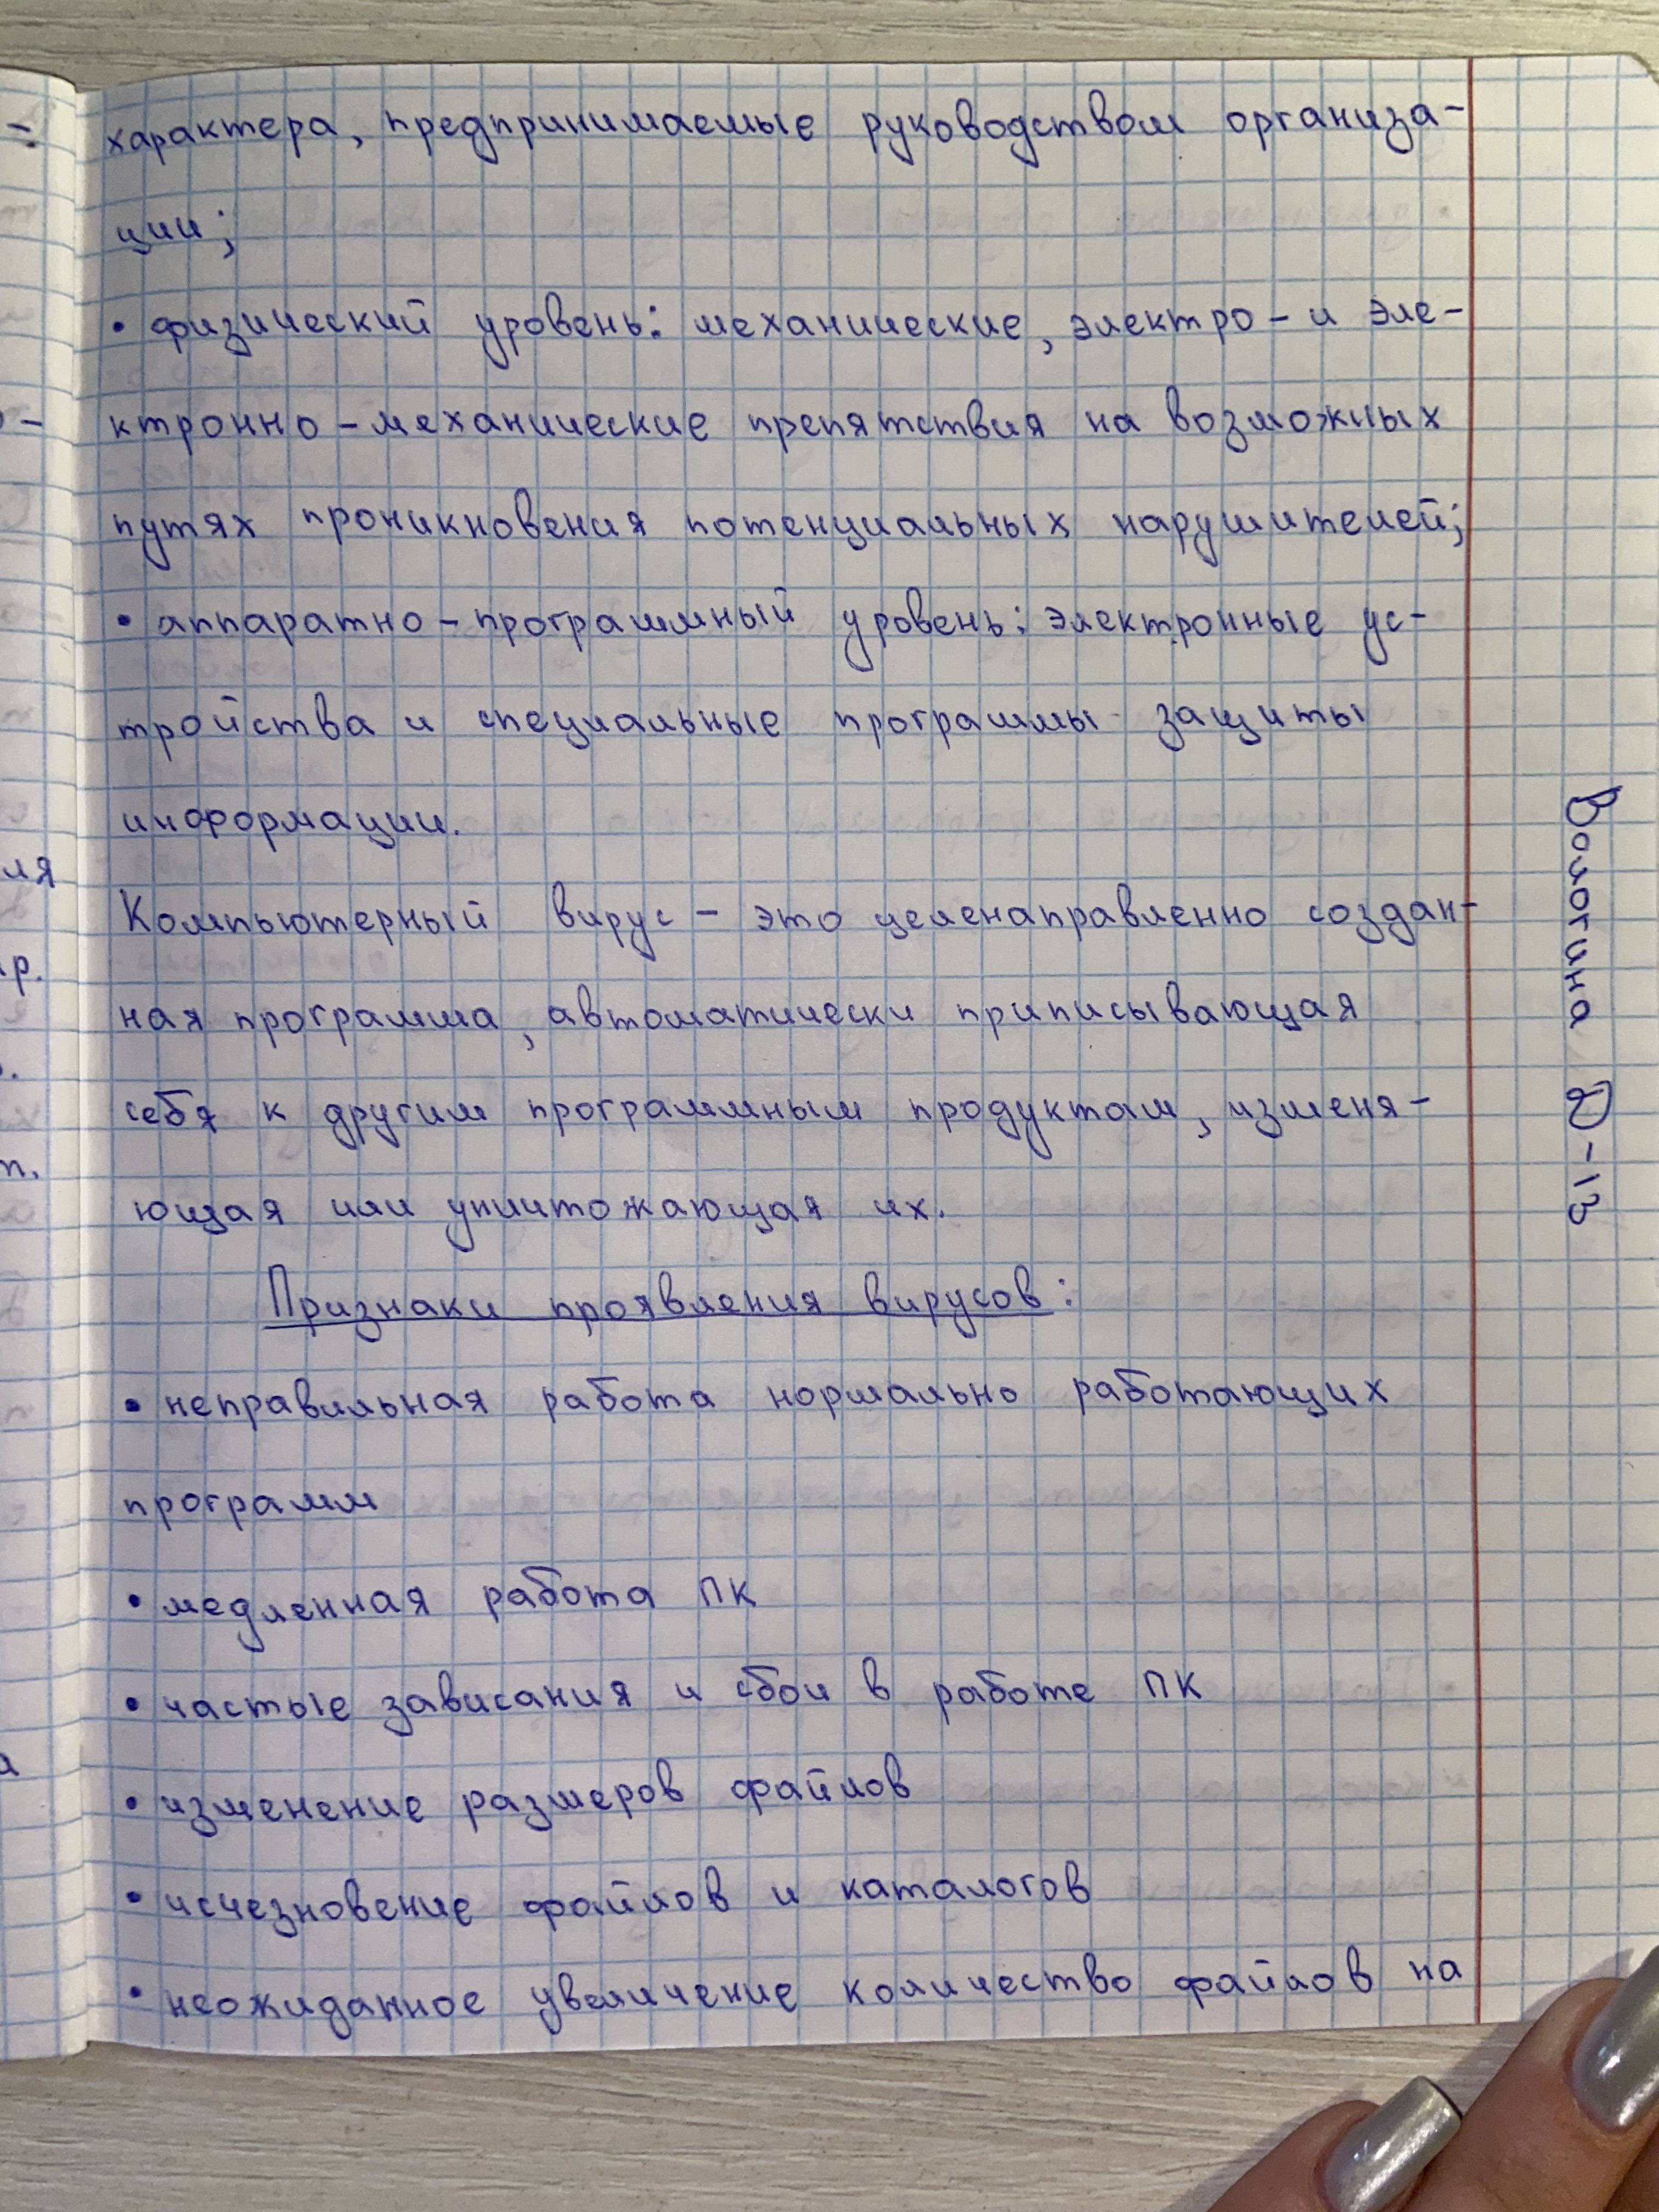 характера, предпринимаемые руководством организа-
ции;
• физический уровень: механические, электро- и эле-
ктронно-механические препятствия на возможных
путях проникновения потенциальных нарушителей;
• аппаратно-программный уровень: электронные ус-
тройства и специальные программы защиты
информации.
Компьютерный вирус - это целенаправленно создан-
ная программа, автоматически приписывающая
себя к другим программным продуктам, изменя-
ющая или уничтожающая их.
Признаки проявления вирусов:
• неправильная работа нормально работающих
программ
• медленная работа ПК
• частые зависания и сбои в работе ПК
• изменение размеров файлов
• исчезновение файлов и каталогов
• неожиданное увеличение количество файлов на
Вологина Д-13
ля
р.